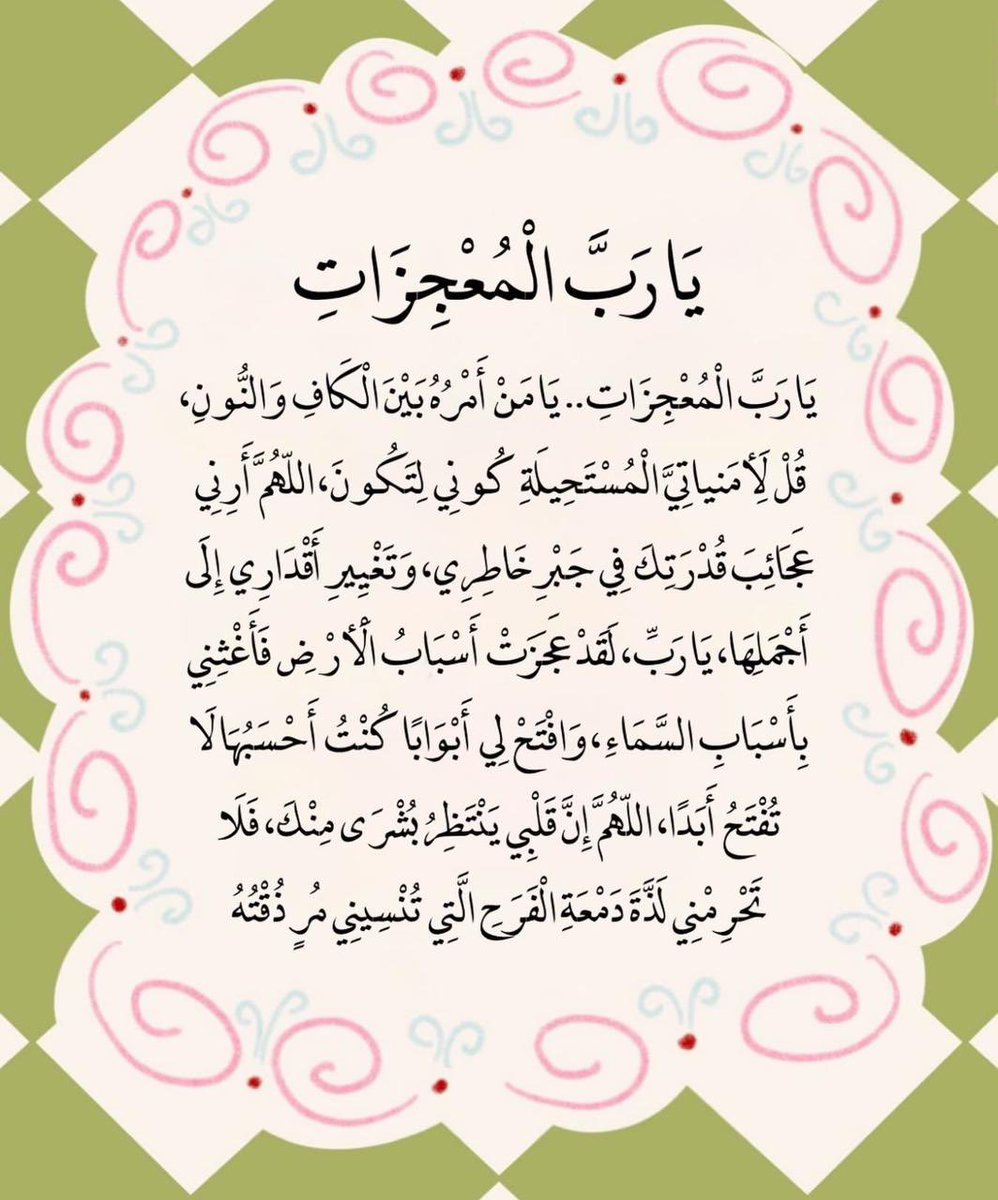 يَا رَبَّ الْمُعْجِزَاتِ
يَا رَبَّ الْمُعْجِزَاتِ.. يَا مَنْ أَمْرُهُ بَيْنَ الْكَافِ وَالنُّونِ،
قُلْ لِأَمَنياتِيَّ الْمُسْتَحِيلَةِ كُونِي لِتَكُونَ، اللّهُمَّ أَرِنِي
عَجَائِبَ قُدْرَتِكَ فِي جَبْرِ خَاطِرِي، وَتَغْيِيرِ أَقْدَارِي إِلَى
أَجْمَلِهَا، يَا رَبِّ، لَقَدْ عَجَزَتْ أَسْبَابُ الْأَرْضِ فَأَغْثِنِي
بِأَسْبَابِ السَّمَاءِ، وَافْتَحْ لِي أَبْوَابًا كُنْتُ أَحْسَبُهَا لَا
تُفْتَحُ أَبَدًا، اللّهُمَّ إِنَّ قَلْبِي يَنْتَظِرُ بُشْرَى مِنْكَ، فَلَا
تَحْرِمْنِي لَذَّةَ دَمْعَةِ الْفَرَحِ الَّتِي تُنْسِينِي مُرٍ ذُقْتُهُ